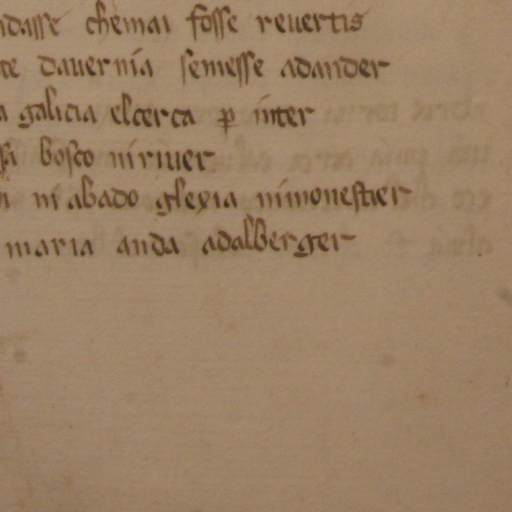 ndasse chemai fosse reuertis
te dauernia semesse adander
a galicia elcerca p inter
sa bosco niriuer
ni abado glexia nimonestier
maria anda adalberger